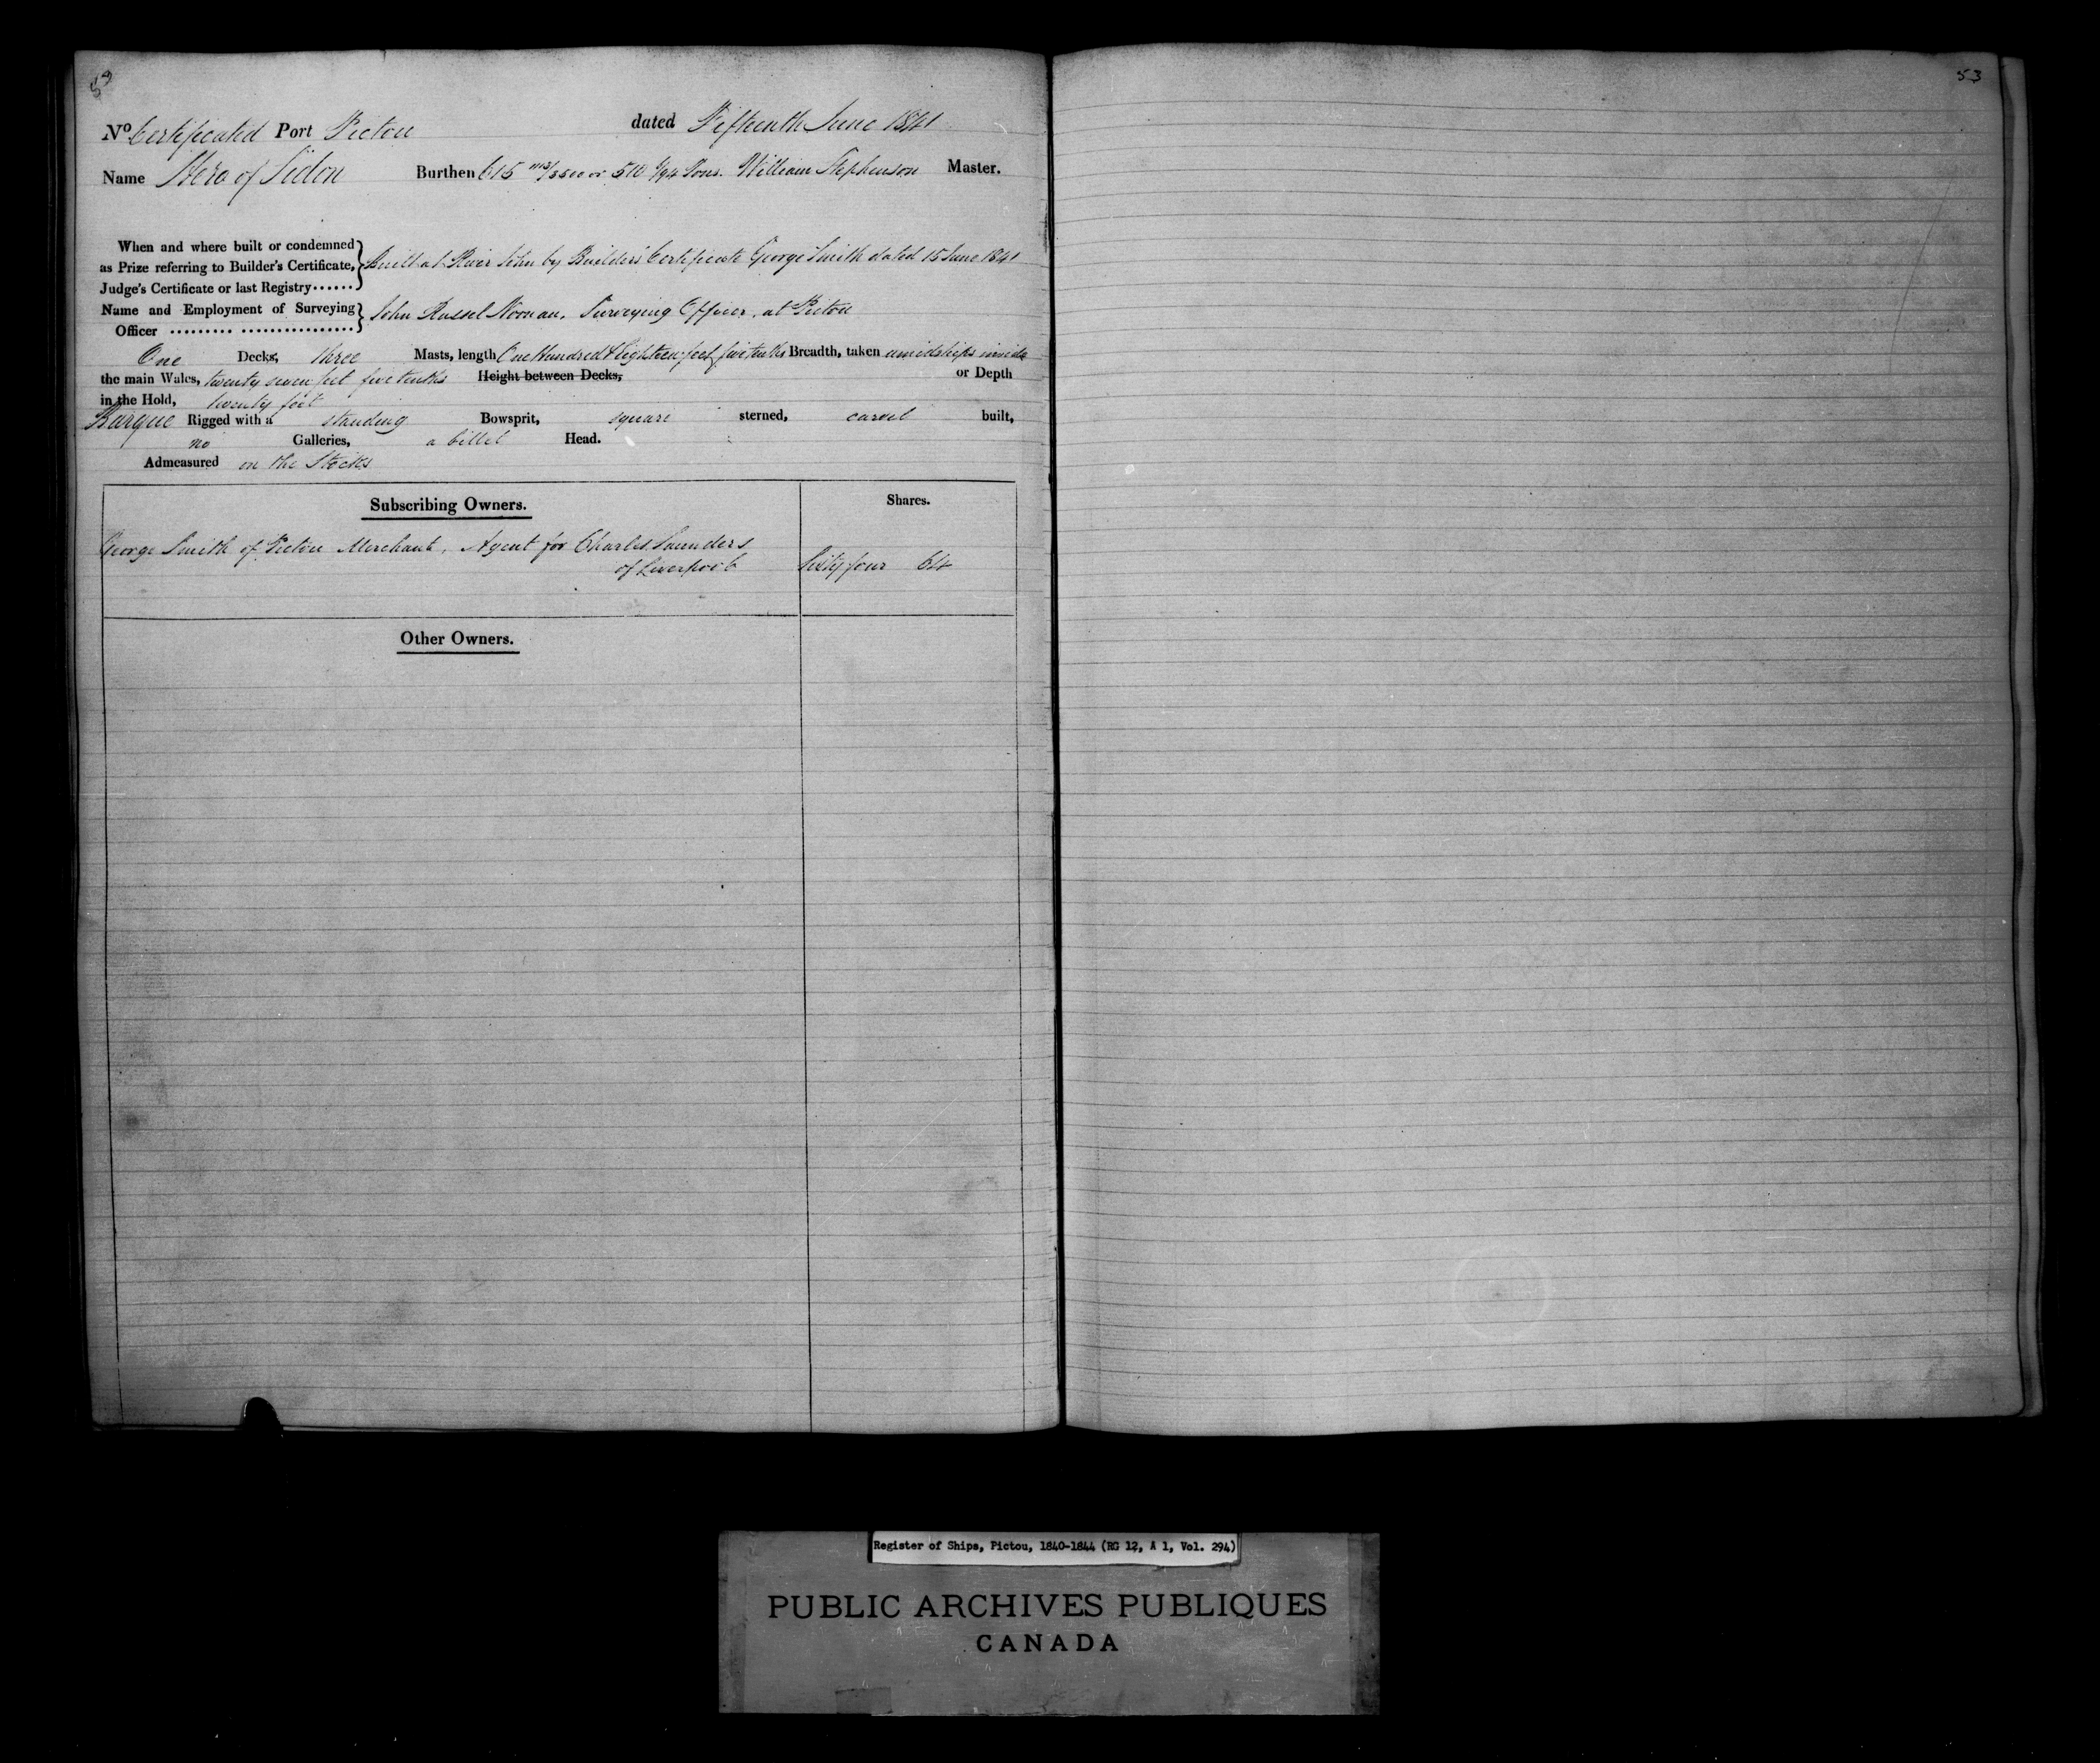 53
53
No Certificated Port Pictou dated Fifteenth June 1841
Name Hero of Sidon Burthen 615 1113/3500 or 510 6/94 Tons. William Stephenson Master.
When and where built or condemned
as Prize referring to Builder's Certificate, Built at River John by Builders Certificate George Smith dated 15 June 1841
Judge's Certificate or last Registry......
Name and Employment of Surveying John Russel Noonan, Surveying Officer, at Pictou
Officer ......... ................
One Decks, three Masts, length One Hundred & Eighteen feet five tenths Breadth, taken amidships inside
the main Wales, twenty seven feet five tenths Height between Decks, or Depth
in the Hold, twenty feet
Barque Rigged with a standing Bowsprit, square sterned, carvel built,
no Galleries, a billet Head.
Admeasured on the Stocks
Subscribing Owners. Shares.
George Smith of Pictou Merchant, Agent for Charles Saunders
of Liverpool Sixty four 64
Other Owners.
Register of Ships, Pictou, 1840-1844 (RG 12, A 1, Vol. 294)
PUBLIC ARCHIVES PUBLIQUES
CANADA